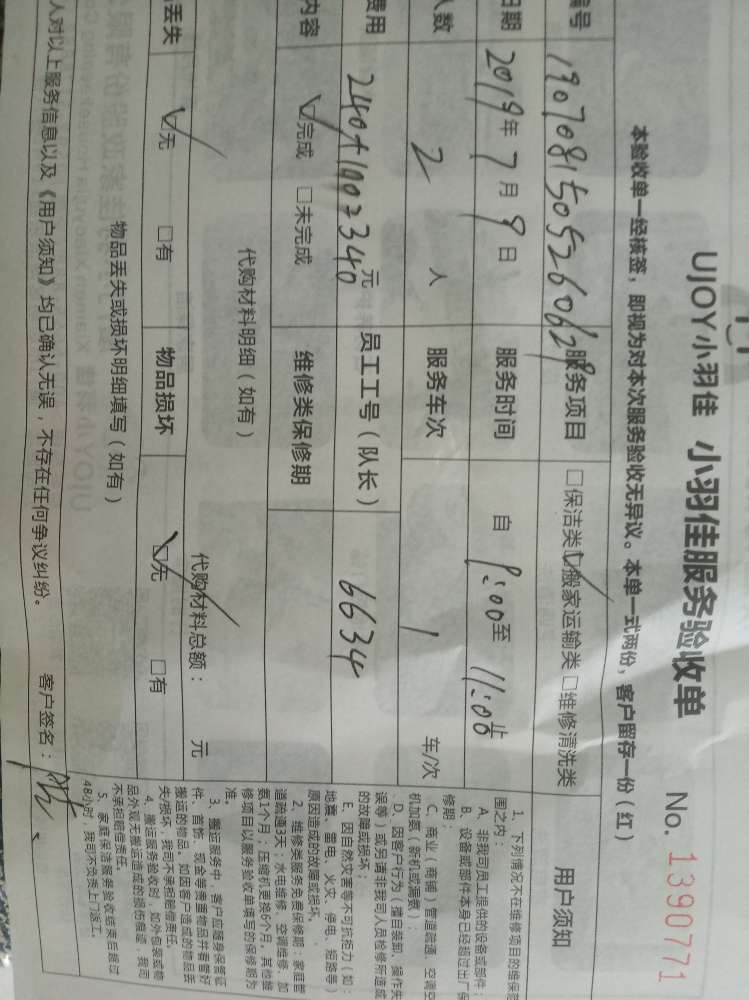 UJOY小羽佳 小羽佳服务验收单 No. 1390771
本验收单一经核签，即视为对本次服务验收无异议。本单一式两份，客户留存一份（红）
编号 190708150526062 服务项目 □保洁类 ☑搬家运输类 □维修清洗类
日期 2019年7月9日 服务时间 自 9:00至 11:00 止
人数 2 人 服务车次 1 车/次
费用 240+100=340 元 员工工号（队长） 6634
内容 ☑完成 □未完成 维修类保修期
代购材料明细（如有）
代购材料总额： 元
丢失 ☑无 □有 物品损坏 ☑无 □有
物品丢失或损坏明细填写（如有）
人对以上服务信息以及《用户须知》均已确认无误，不存在任何争议纠纷。 客户签名：
用户须知
1、下列情况不在维修项目的维保范
围之内：
A、非我司员工提供的设备或部件；
B、设备或部件本身已经超过出厂保
修期；
C、商业（商铺）管道疏通、空调空
机加氨（新机或漏氨）；
D、因客户行为（擅自装卸、操作失
误等）或另请非我司人员检修所造成
的故障或损坏；
E、因自然灾害等不可抗拒力（如：
地震、雷电、火灾、停电、短路等）
原因造成的故障或损坏。
2、维修类服务免费保修期：家庭管
道疏通3天；水电维修、空调维修、加
氨1个月；压缩机更换6个月，其他维
修项目以服务验收单填写的保修期为
准。
3、搬运服务中，客户应随身保管证
件、首饰、现金等贵重物品并看管好
搬运的物品，如因客户造成的物品丢
失/损坏，我司不承担赔偿责任。
4、搬运服务验收时，如外包装或物
品外观无搬运造成的损伤痕迹，我司
不承担赔偿责任。
5、家庭保洁服务验收结束后超过
48小时，我司不负责上门返工。